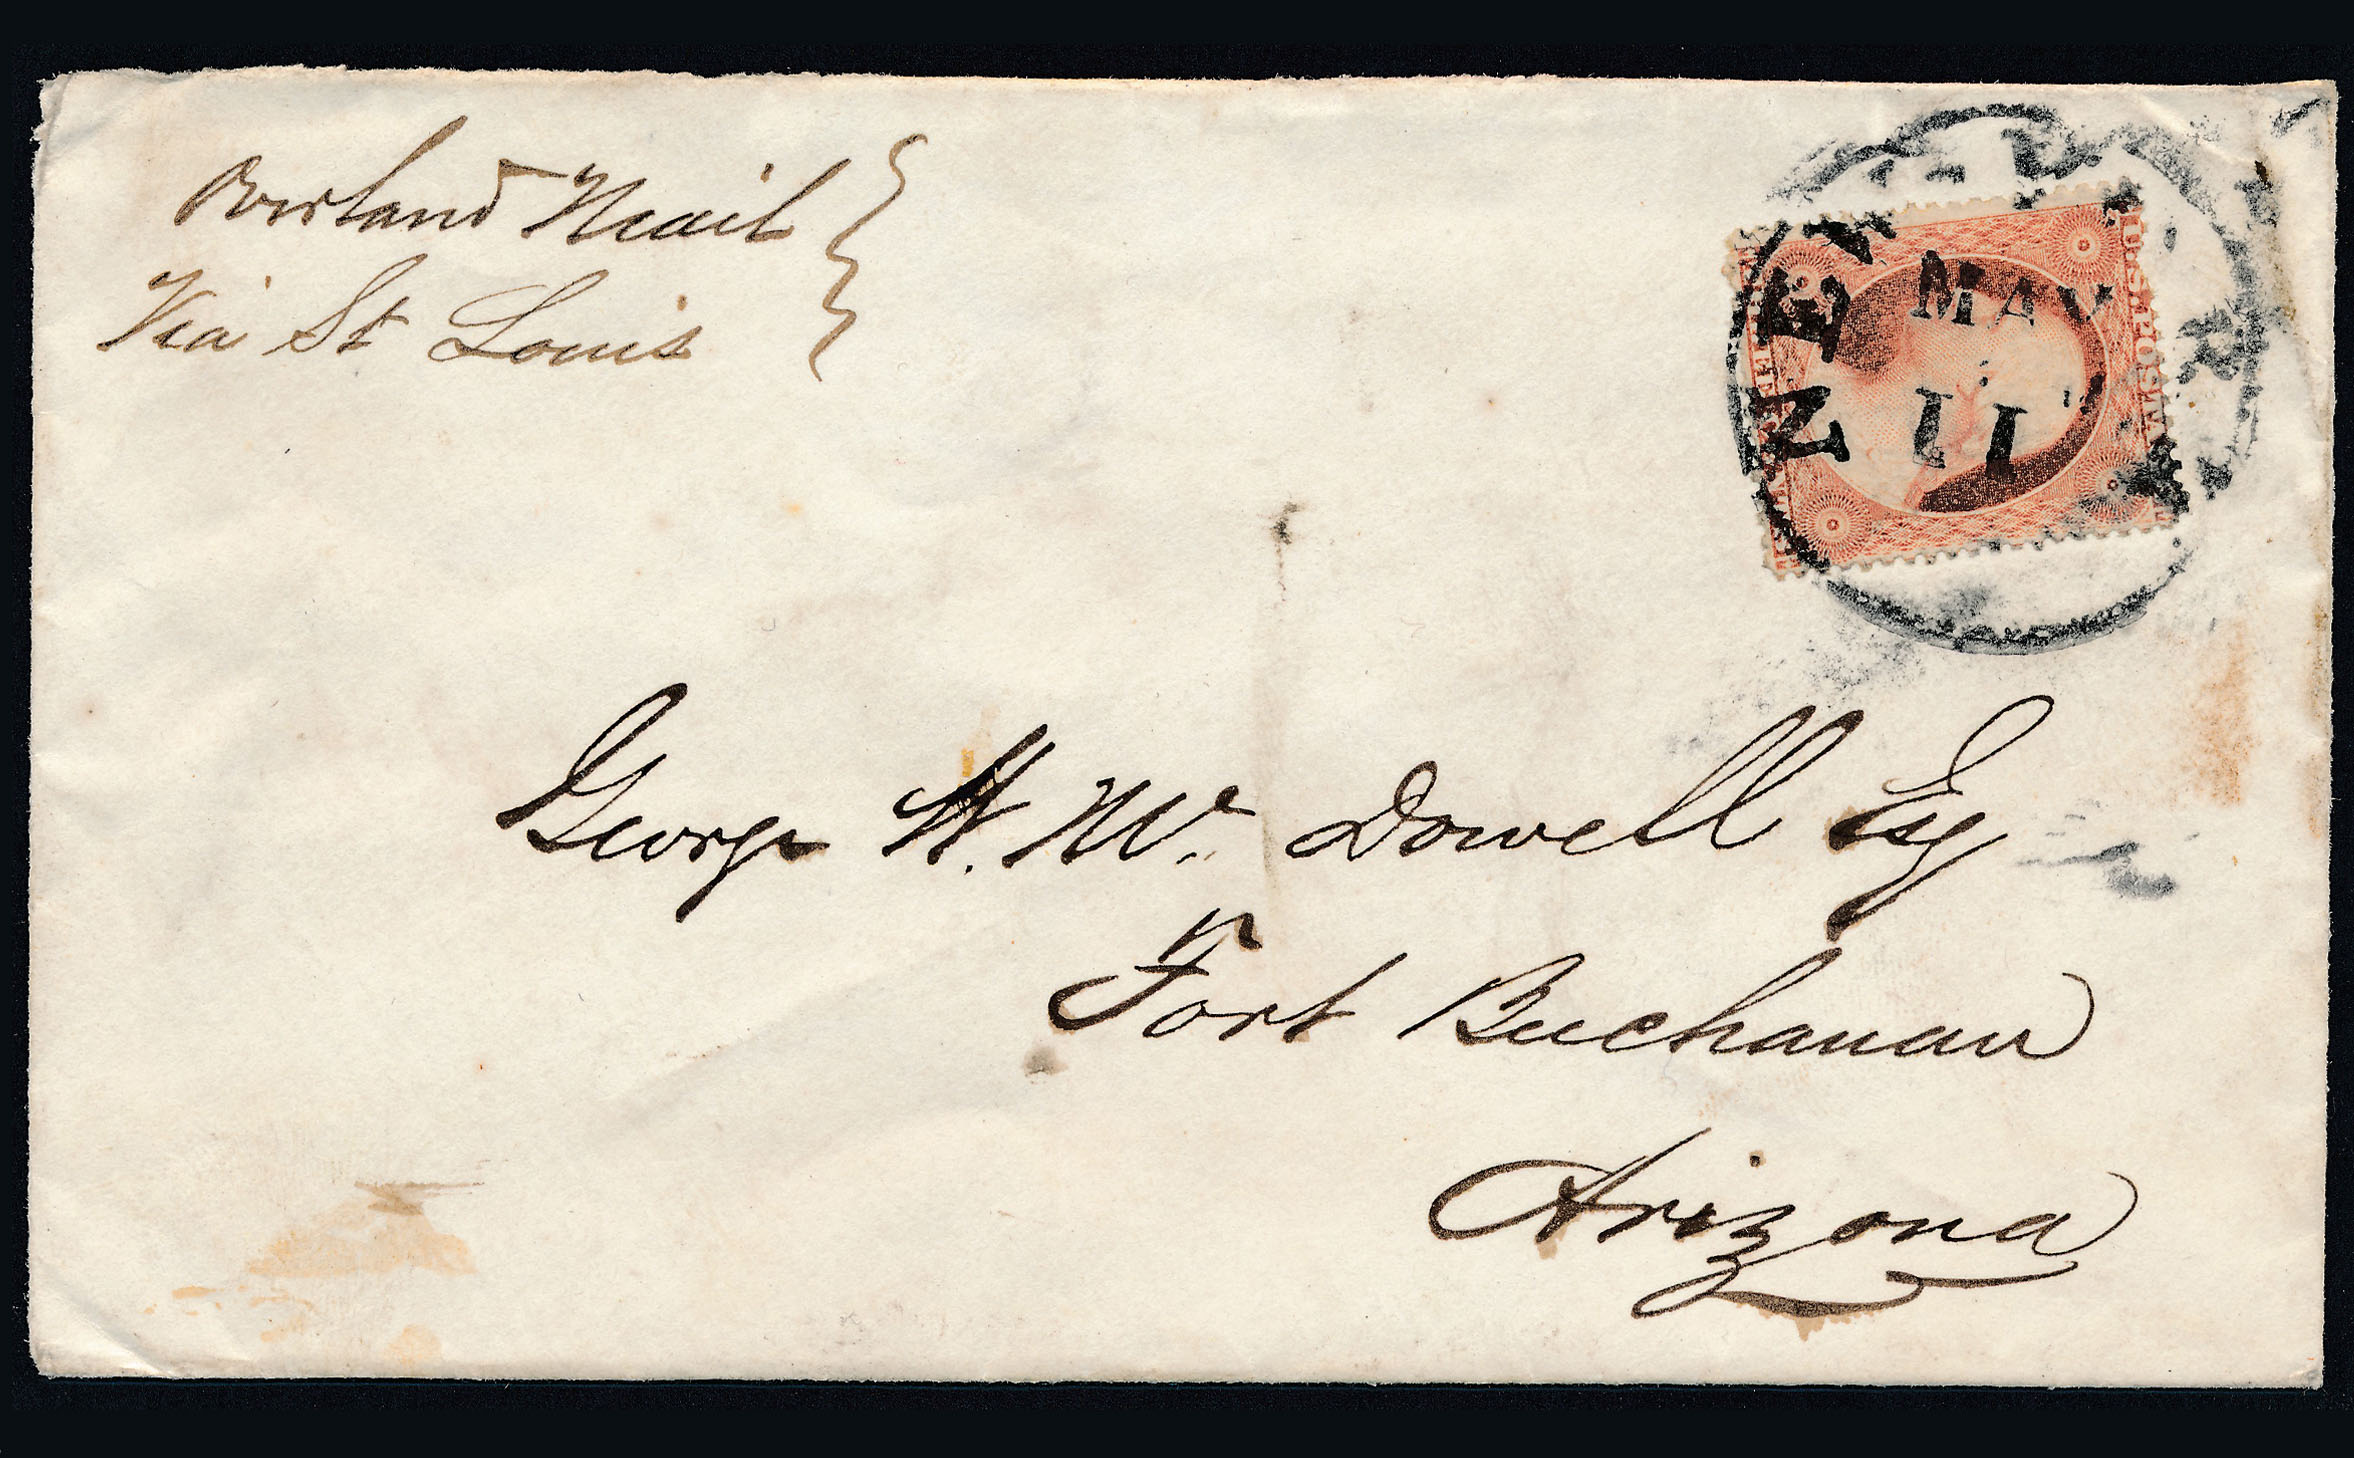 Overland Mail
Via St Louis
NEW
MAY
11
U.S. POST
George W. Mc Dowell Esq
Fort Buchanan
Arizona